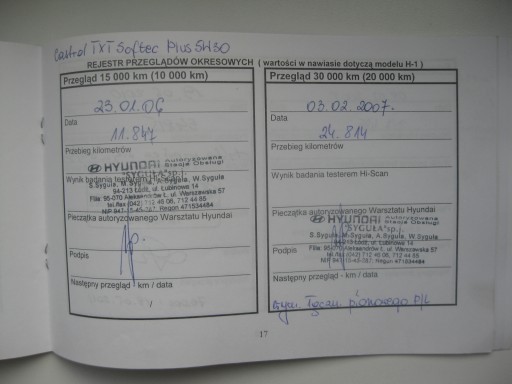 Castrol TXT Softec Plus 5W30
REJESTR PRZEGLĄDÓW OKRESOWYCH ( wartości w nawiasie dotyczą modelu H-1 )
Przegląd 15 000 km (10 000 km)
23.01.06
Data
11.847
Przebieg kilometrów
HYUNDAI Autoryzowana Stacja Obsługi
Wynik badania testerem Hi-Scan
"SYGUŁA" sp.j.
S.Syguła, M.Syguła, A.Syguła, W.Syguła
94-213 Łódź, ul. Lubinowa 14
Filia: 95-070 Aleksandrów Ł. ul. Warszawska 57
tel./fax (042) 712 46 08, 712 44 85
Pieczątka autoryzowanego Warsztatu Hyundai
Podpis
Następny przegląd - km / data
Przegląd 30 000 km (20 000 km)
03.02.2007.
Data
24.814
Przebieg kilometrów
Wynik badania testerem Hi-Scan
Pieczątka autoryzowanego Warsztatu Hyundai
HYUNDAI Autoryzowana Stacja Obsługi
"SYGUŁA" sp.j.
S.Syguła, M.Syguła, A.Syguła, W.Syguła
94-213 Łódź, ul. Lubinowa 14
Filia: 95-070 Aleksandrów Ł. ul. Warszawska 57
Podpis
tel./fax (042) 712 46 08, 712 44 85
Następny przegląd - km / data
P/L
17